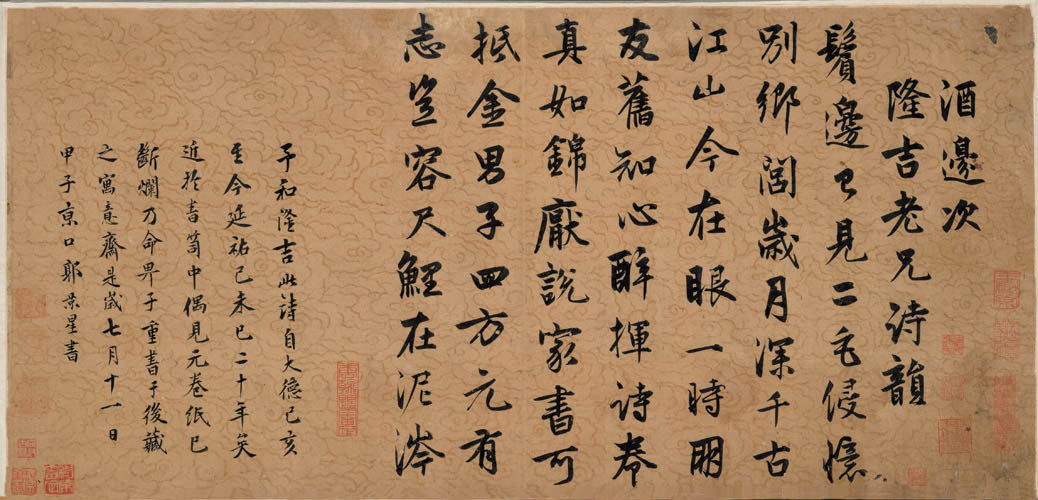 酒邊次
隆吉老兄詩韻
鬢邊已見二毛侵憶
別鄉閭歲月深千古
江山今在眼一時朋
友舊知心醉揮詩卷
真如錦厭說家書可
抵金男子四方元有
志豈容尺鯉在泥涔
予和隆吉此詩自大德己亥
至今延祐己未已二十年矣
近於書笥中偶見元卷紙已
斷爛乃命畀予重書于後藏
之寓意齋是歲七月十一日
甲子京口郭景星書